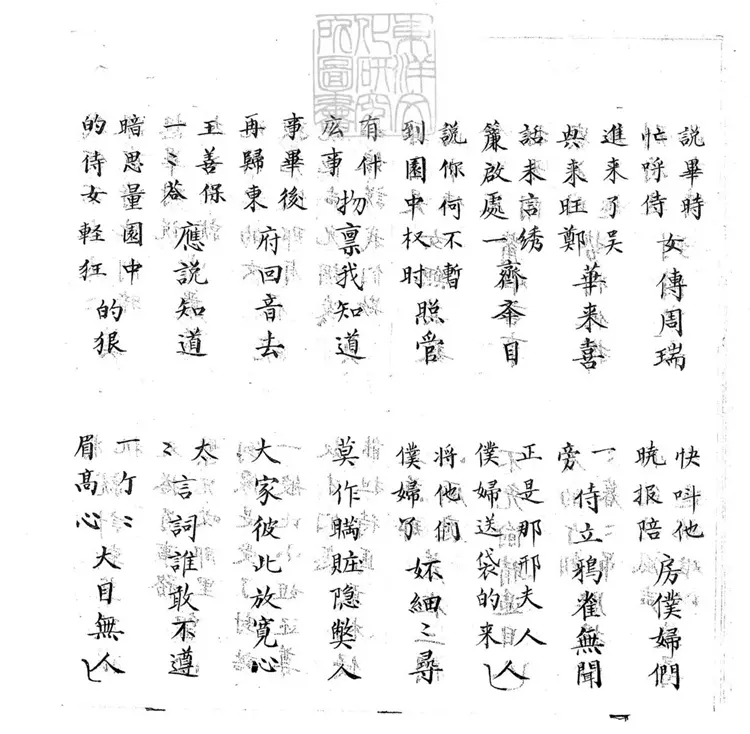 說畢時
忙呼侍
女傳周瑞
快叫他
曉报陪
房僕婦們
進来了吳
興来旺鄭
華来喜
一
旁
侍立鴉雀無聞
話未言綉
簾啟處
一齊夲目
正是那邢夫人
僕婦送袋的来人
說你何不暫
到園中权时
照管
將他們
僕婦了
細〻尋
有什
庅事
物禀我知道
莫作瞞賍隐獘人
事畢後
再歸東
府回音去
大家彼此放寛心
王善保
一〻答
應說知道
太
〻
言詞誰敢不遵
暗思量園中
的侍女輕狂
的狠
一个〻
眉髙心
大目無人
東洋文
化研究
所圖書